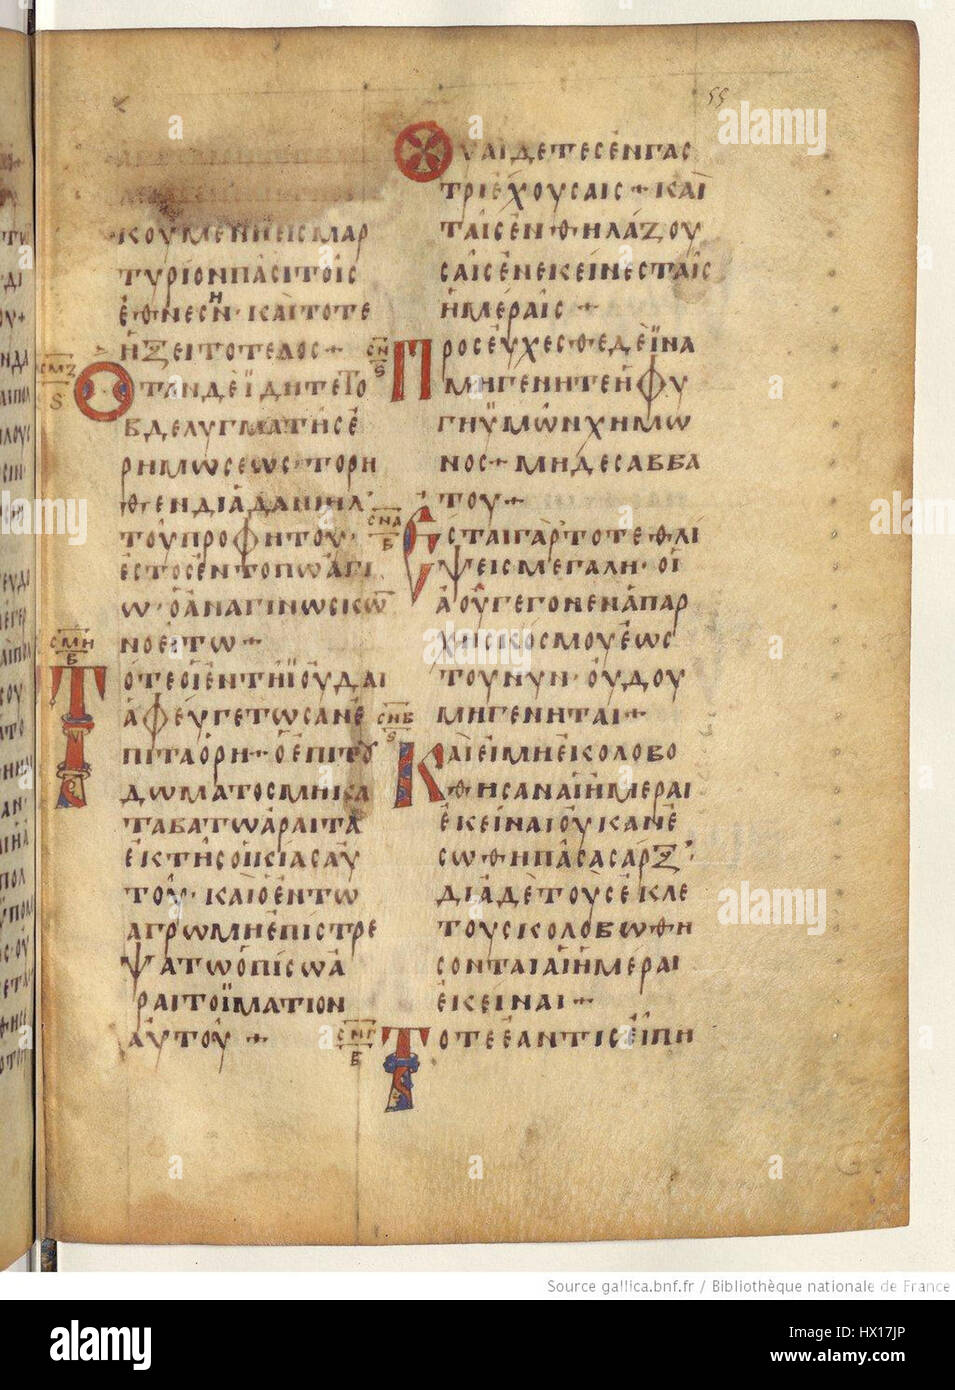 55
κουμενηεισμαρ
τυριονπασιτοις
εθνεσην·καιτοτε
ηξειτοτελος+
σμζ
ς
Οτανδεϊδητετο
βδελυγματησε
ρημωσεως·τορη
θενδιαδανιηλ
τουπροφητου·
εστοσεντοπωαγι
ω·οαναγινωσκω
νοειτω+
σμη
β
Τοτεοιεντηϊουδαι
αφευγετωσανε
πιταορη+οεπιτȣ
δωματοσμηκα
ταβατωαραιτα
εκτησοικιασαυ
του·καιοεντω
αγρωμηεπιστρε
ψατωοπισωα
ραιτοϊματιον
αυτου+
Ουαιδετεσενγασ
τριεχουσαις+και
ταισενθηλαζου
σαισενεκεινεσταις
ημεραις+
σν
ς
Προσευχεσθεδεϊνα
μηγενητεηφυ
γηϋμωνχημω
νος+μηδεσαββα
του+
σνα
β
Εσταιγαρτοτεθλι
ψεισμεγαλη·οι
αουγεγονεναπαρ
χησκοσμουεως
τουνυν·ουδου
μηγενηται+
σνβ
ς
Καιειμηεκολοβο
θησαναιημεραι
εκειναιουκανε
σωθηπασασαρξ
διαδετουσεκλε
τουσκολοβωθη
σονταιαιημεραι
εκειναι+
σνγ
β
Τοτεεαντισειπη
Source gallica.bnf.fr / Bibliothèque nationale de France
alamy
a
alamy
Image ID: HX17JP
www.alamy.com